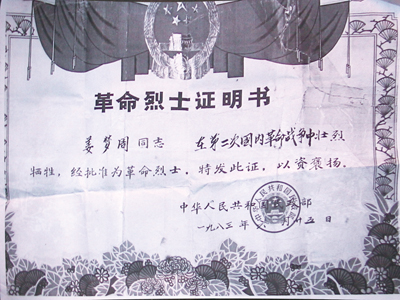 革命烈士证明书
姜梦周同志 在第二次国内革命战争中壮烈
牺牲，经批准为革命烈士。特发此证，以资褒扬。
中华人民共和国民政部
一九八三年 月廿五日